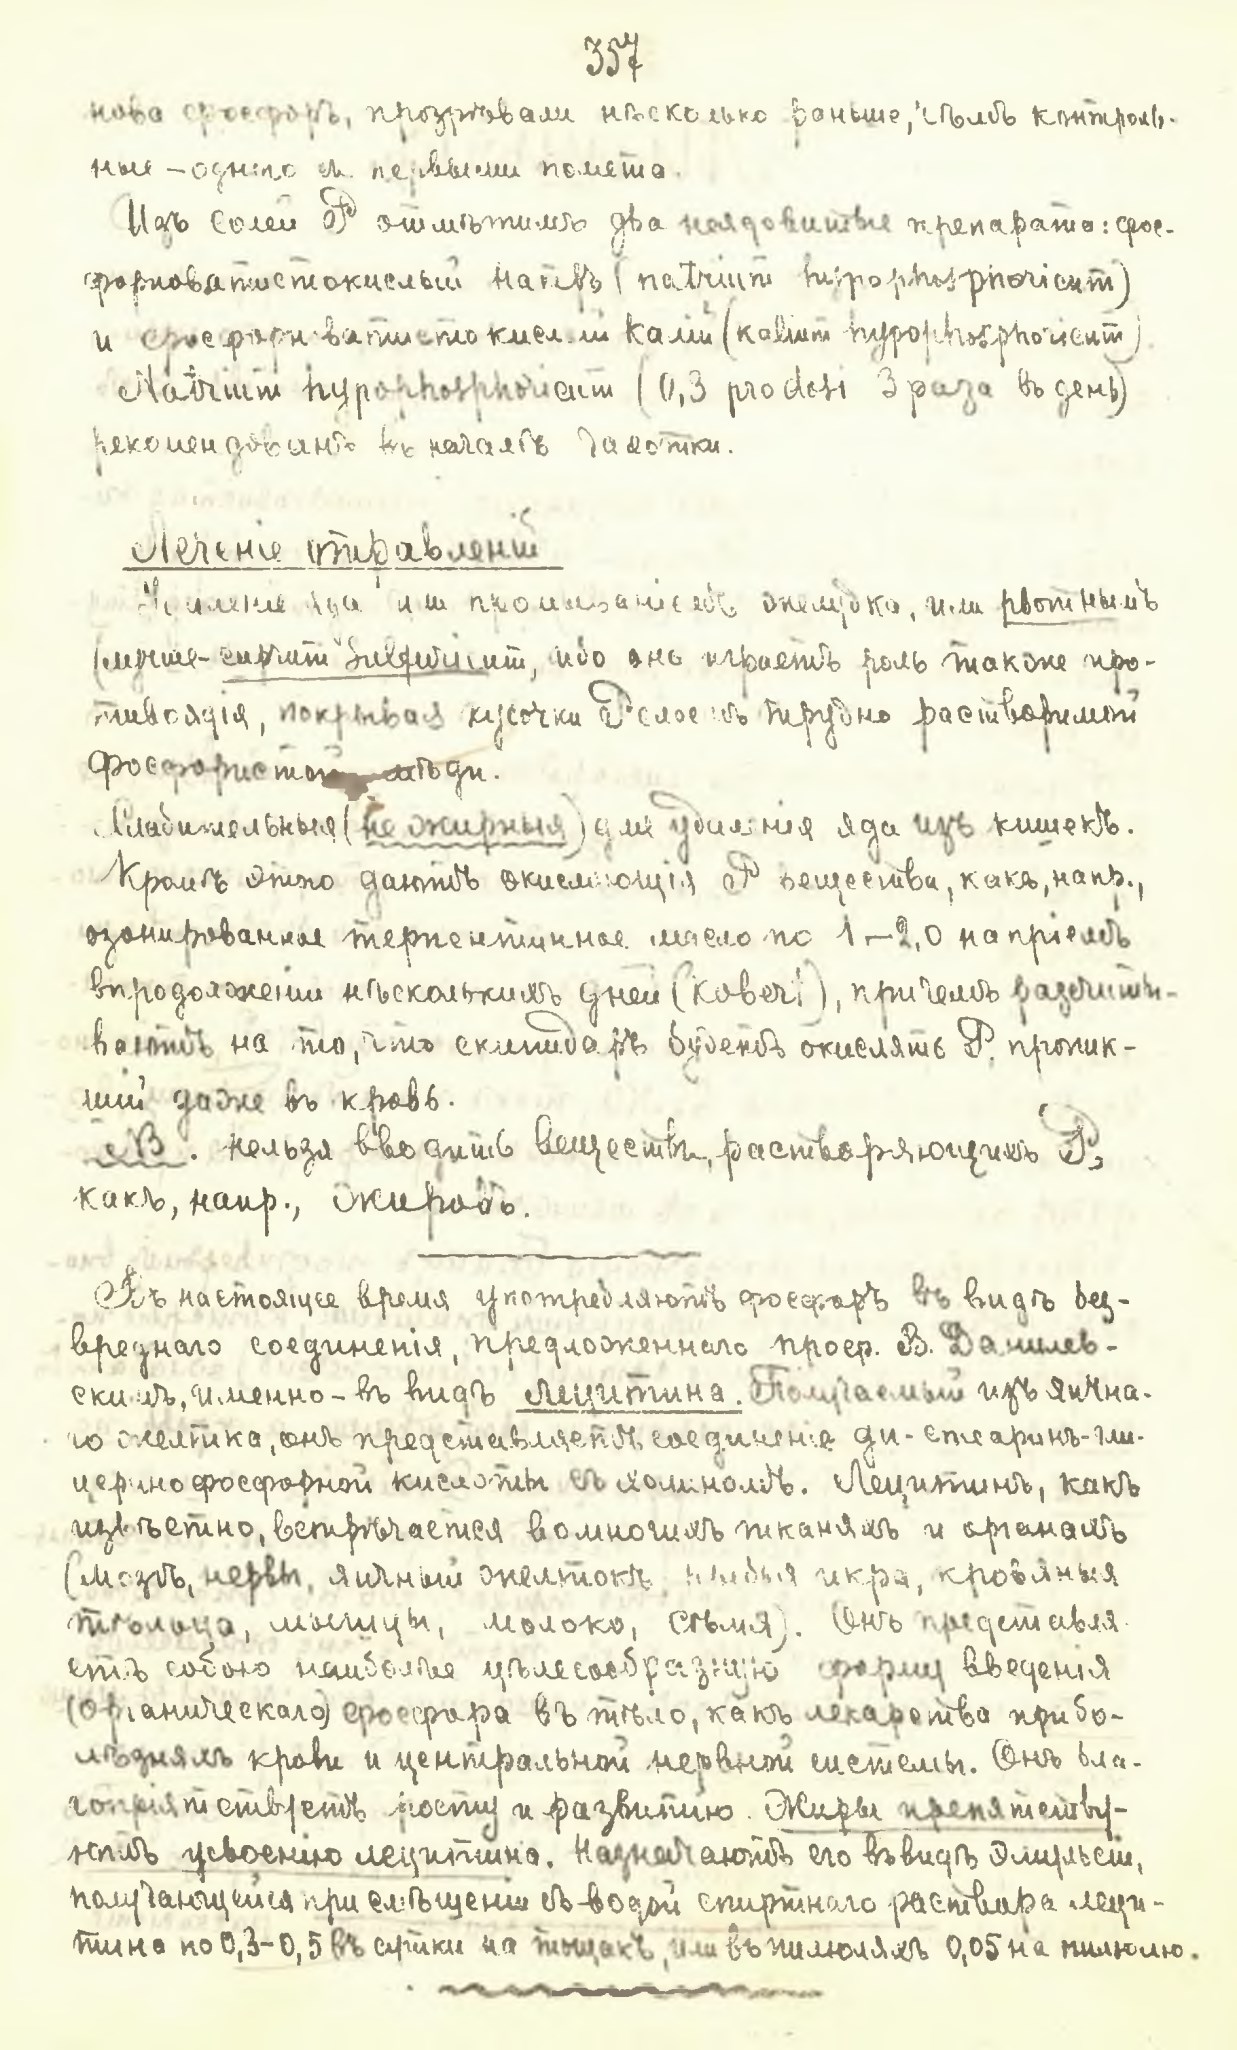 357
нова фосфоръ, прозрѣвали нѣсколько раньше, чѣмъ контроль-
ные – одного и. первыми помета.
Изъ солей P отмѣтимъ два неядовитые препарата: фос-
форноватистокислый натръ (natrium hypophosphoricum)
и фосфорноватистокислый калій (kalium hypophosphoricum)
Natrium hypophosphoricum (0,3 pro dosi 3 раза въ день)
рекомендованъ въ началѣ чахотки.
Леченіе отравленій
Удаленіе яда или промываніемъ желудка, или рвотнымъ
(лучше – cuprum sulfuricum, ибо онъ играетъ роль также про-
тивоядія, покрывая кусочки P слоемъ трудно растворимой
фосфористой мѣди.
Слабительныя (не жирныя) для удаленія яда изъ кишекъ.
Кромѣ этого даютъ окисляющія P вещества, какъ, напр.,
озонированное терпентинное масло по 1–2,0 на пріемъ
впродолженіи нѣсколькихъ дней (Kobert), причемъ разсчиты-
ваютъ на то, что скипидаръ будетъ окислять P, проник-
шій даже въ кровь.
NB. нельзя вводить веществъ, растворяющихъ P,
какъ, напр., жировъ.
Въ настоящее время употребляютъ фосфоръ въ видѣ без-
вреднаго соединенія, предложеннаго проф. В. Данилев-
скимъ, именно – въ видѣ лецитина. Получаемый изъ яична-
го желтка, онъ представляетъ соединеніе ди-стеаринъ-гли-
церинофосфорной кислоты съ холиномъ. Лецитинъ, какъ
извѣстно, встрѣчается во многихъ тканяхъ и органахъ
(мозгъ, нервы, яичный желтокъ, рыбья икра, кровяныя
тѣльца, мышцы, молоко, сѣмя). Онъ представля
етъ собою наиболѣе цѣлесообразную форму введенія
(органическаго) фосфора въ тѣло, какъ лекарства при бо-
лѣзняхъ крови и центральной нервной системы. Онъ бла-
гопріятствуетъ росту и развитію. Жиры препятству-
ютъ усвоенію лецитина. Назначаютъ его въ видѣ эмульсіи,
получающейся при смѣшеніи съ водой спиртнаго раствора леци-
тина по 0,3–0,5 въ сутки на тощакъ, или въ пилюляхъ 0,05 на пилюлю.